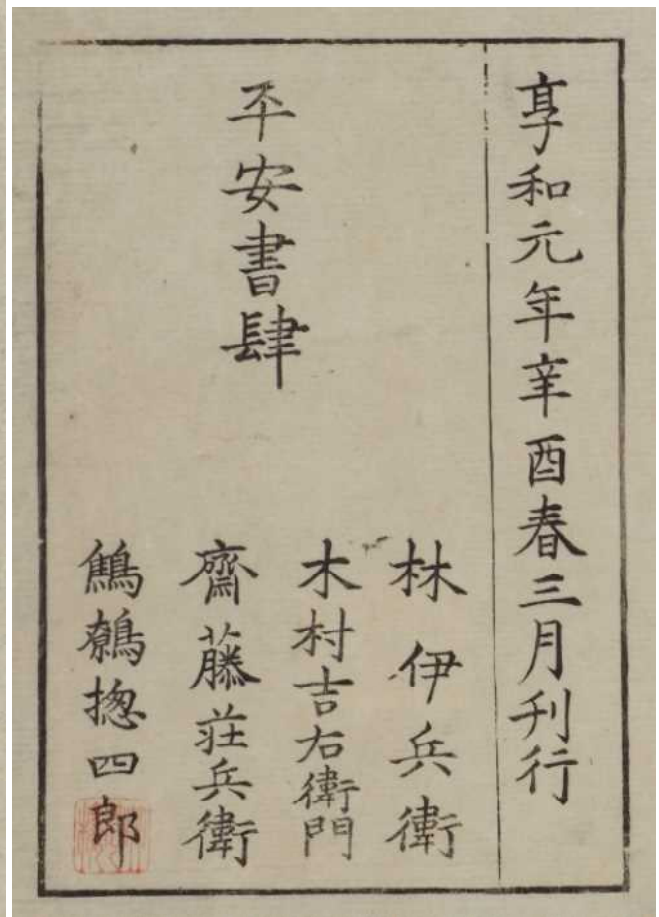 享和元年辛酉春三月刊行
平安書肆
林伊兵衛
木村吉右衛門
齋藤莊兵衛
鷦鷯揔四郎